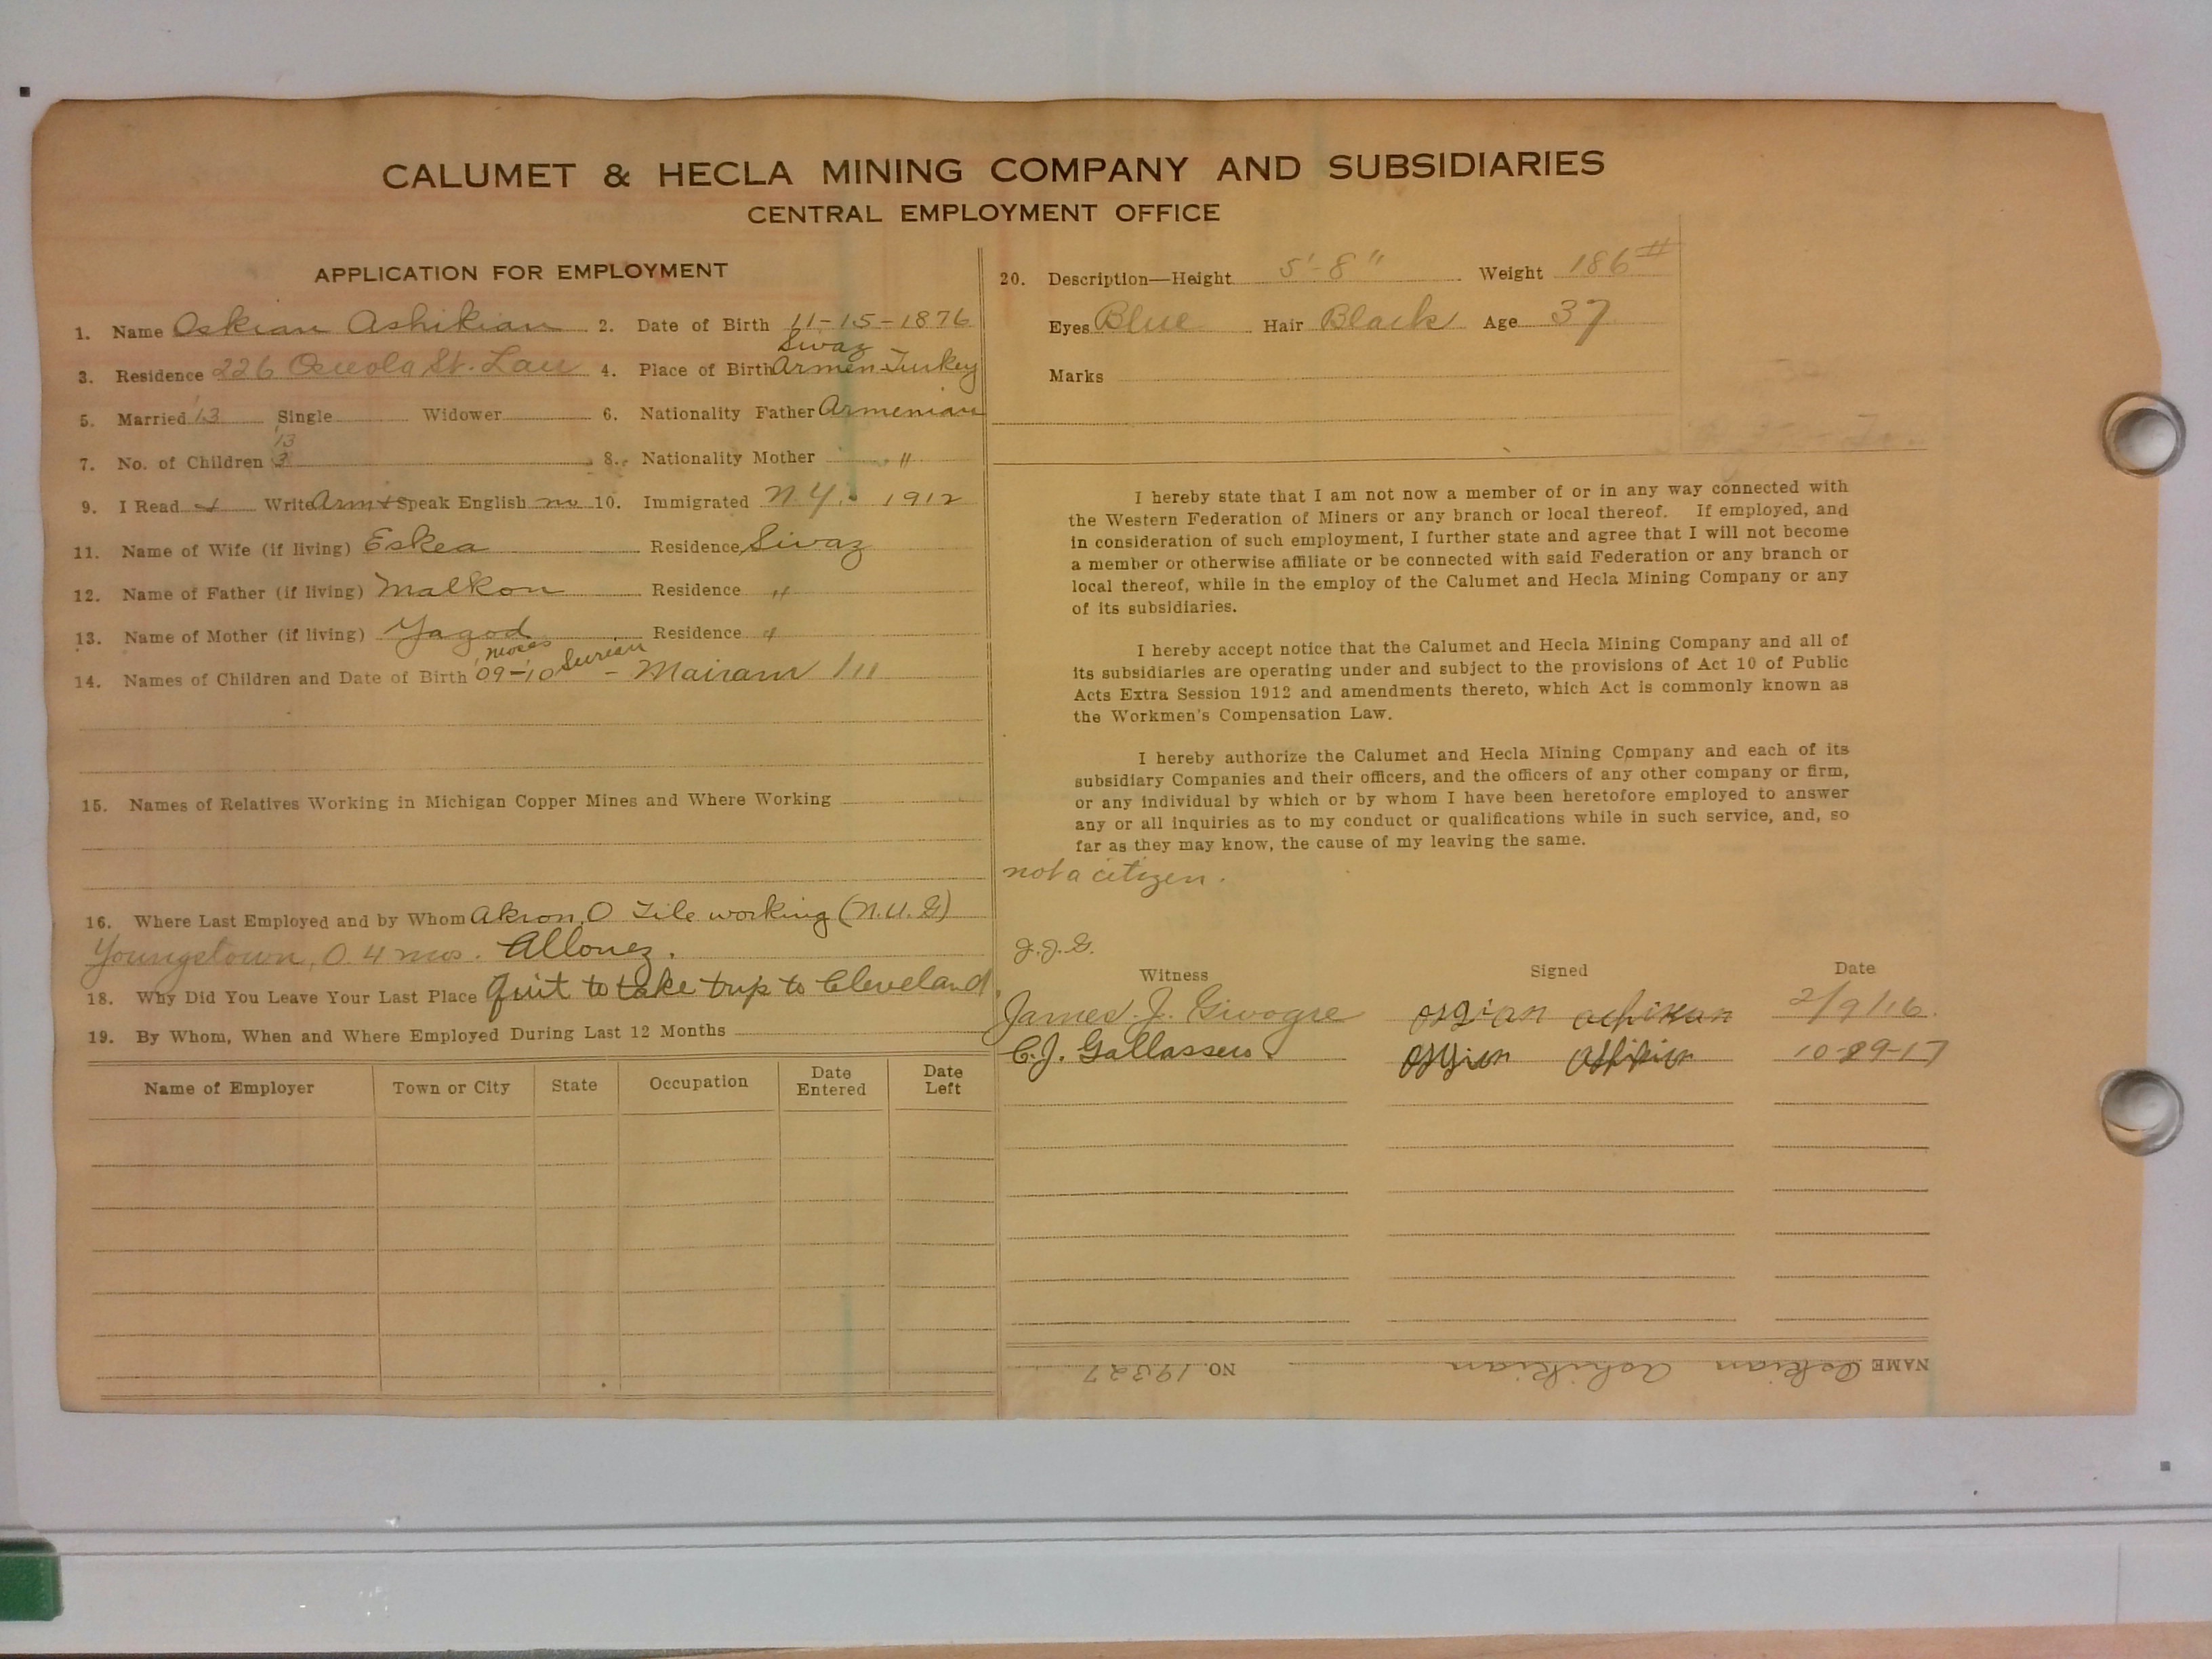 CALUMET & HECLA MINING COMPANY AND SUBSIDIARIES
CENTRAL EMPLOYMENT OFFICE
APPLICATION FOR EMPLOYMENT
1. Name Oskian Ashikian 2. Date of Birth 11-15-1876
Sivaz
3. Residence 226 Osceola St. Lau 4. Place of Birth Armen-Turkey
5. Married '13 Single Widower 6. Nationality Father Armenian
'13
7. No. of Children 3 8. Nationality Mother "
9. I Read + Write Arm + Speak English no 10. Immigrated N.Y. 1912
11. Name of Wife (if living) Eskea Residence Sivaz
12. Name of Father (if living) Malkon Residence "
13. Name of Mother (if living) Yagod Residence "
Moses Surian
14. Names of Children and Date of Birth '09-'10 - Mairam '11
15. Names of Relatives Working in Michigan Copper Mines and Where Working
16. Where Last Employed and by Whom Akron, O Tile working (N.U.G)
Youngstown, O. 4 mos. Allouez.
18. Why Did You Leave Your Last Place Quit to take trip to Cleveland.
19. By Whom, When and Where Employed During Last 12 Months
Name of Employer Town or City State Occupation Date Entered Date Left
20. Description—Height 5'-8" Weight 186#
Eyes Blue Hair Black Age 37
Marks
I hereby state that I am not now a member of or in any way connected with
the Western Federation of Miners or any branch or local thereof. If employed, and
in consideration of such employment, I further state and agree that I will not become
a member or otherwise affiliate or be connected with said Federation or any branch or
local thereof, while in the employ of the Calumet and Hecla Mining Company or any
of its subsidiaries.
I hereby accept notice that the Calumet and Hecla Mining Company and all of
its subsidiaries are operating under and subject to the provisions of Act 10 of Public
Acts Extra Session 1912 and amendments thereto, which Act is commonly known as
the Workmen's Compensation Law.
I hereby authorize the Calumet and Hecla Mining Company and each of its
subsidiary Companies and their officers, and the officers of any other company or firm,
or any individual by which or by whom I have been heretofore employed to answer
any or all inquiries as to my conduct or qualifications while in such service, and, so
far as they may know, the cause of my leaving the same.
not a citizen.
J.J.G.
Witness Signed Date
James J. 2/9/16.
C.J. 10-29-17
NAME Oskian Ashikian NO. 19327